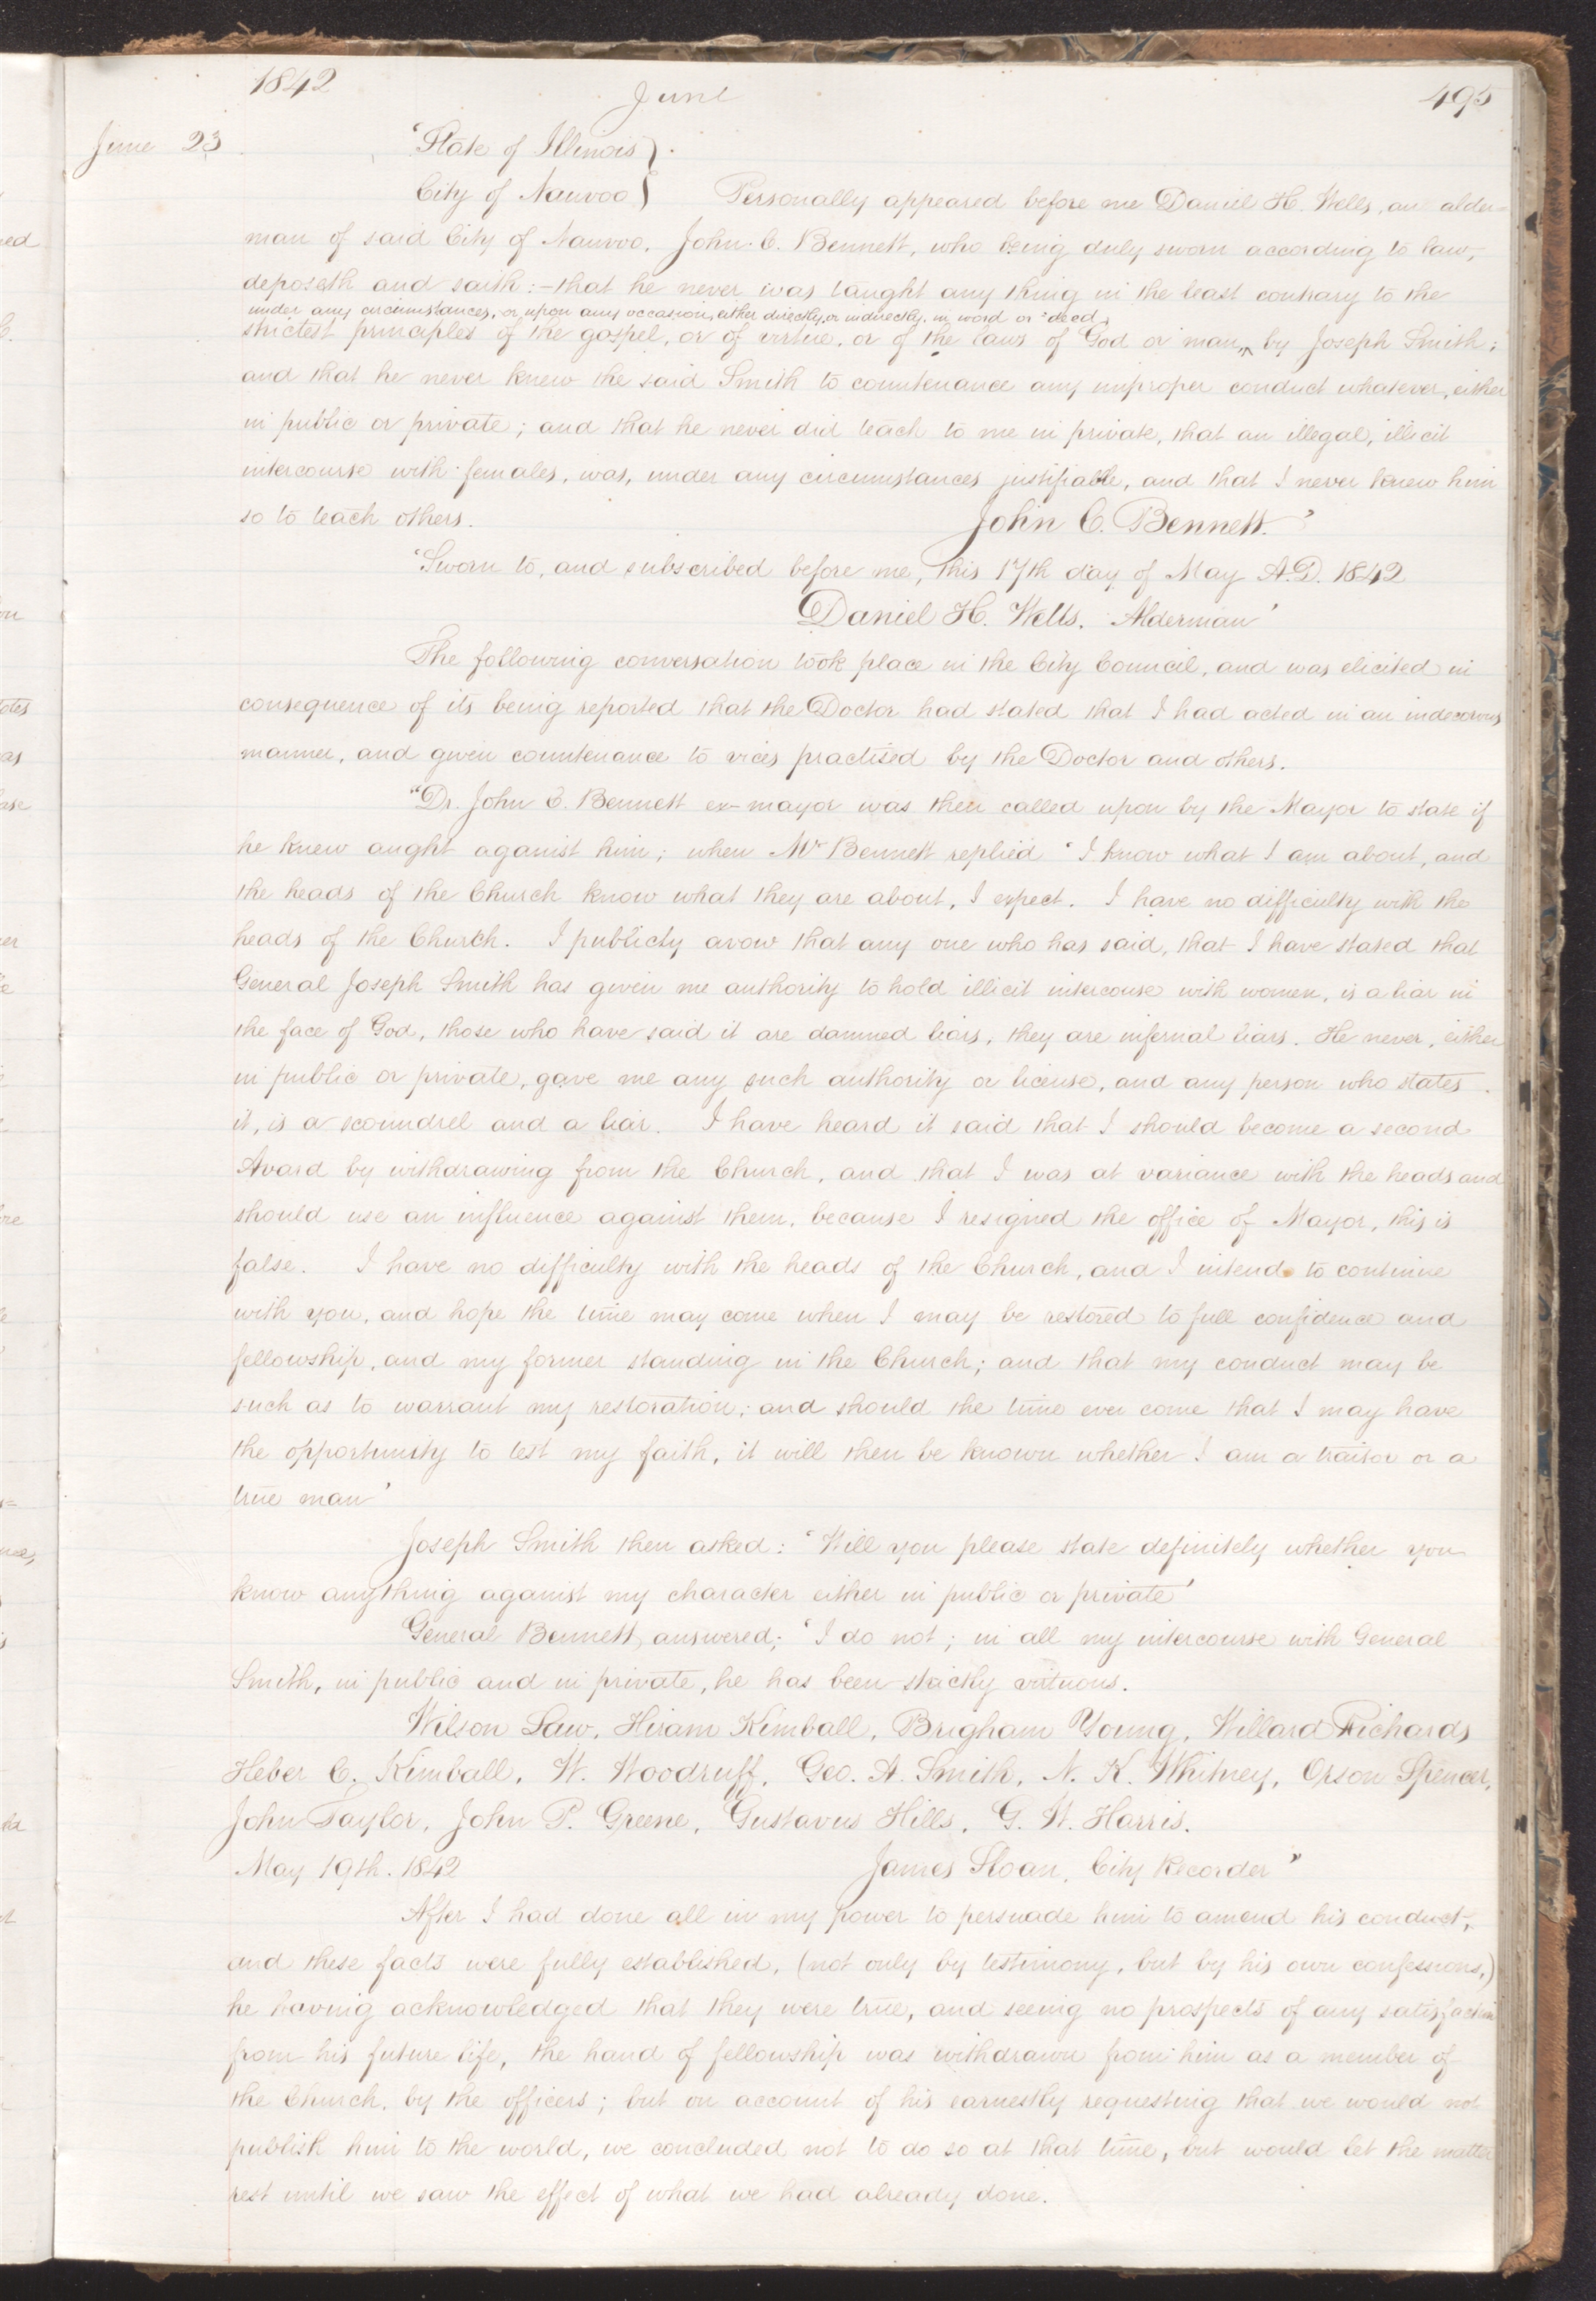 1842 June 495
June 23 'State of Illinois }.
City of Nauvoo } Personally appeared before me Daniel H. Wells, an alder=
man of said City of Nauvoo, John C. Bennett, who being duly sworn according to law,
deposeth and saith:— that he never was taught any thing in the least contrary to the
under any circumstances, or upon any occasion, either directly, or indirectly, in word or deed,
strictest principles of the gospel, or of virtue, or of the laws of God or man, ^ by Joseph Smith;
and that he never knew the said Smith to countenance any improper conduct whatever, either
in public or private; and that he never did teach to me in private, that an illegal, illicit
intercourse with females, was, under any circumstances justifiable, and that I never knew him
so to teach others. John C. Bennett.'
'Sworn to, and subscribed before me, this 17th day of May A.D. 1842
Daniel H. Wells. Alderman'
The following conversation took place in the City Council, and was elicited in
consequence of its being reported that the Doctor had stated that I had acted in an indecorous
manner, and given countenance to vices practised by the Doctor and others.
"Dr. John C. Bennett ex-mayor was then called upon by the Mayor to state if
he knew aught against him; when Mr Bennett replied 'I know what I am about, and
the heads of the Church know what they are about, I expect. I have no difficulty with the
heads of the Church. I publicly avow that any one who has said, that I have stated that
General Joseph Smith has given me authority to hold illicit intercouse with women, is a liar in
the face of God, those who have said it are damned liars, they are infernal liars. He never, either
in public or private, gave me any such authority or license, and any person who states
it, is a scoundrel and a liar. I have heard it said that I should become a second
Avard by withdrawing from the Church, and that I was at variance with the heads and
should use an influence against them, because I resigned the office of Mayor, this is
false. I have no difficulty with the heads of the Church, and I intend to continue
with you, and hope the time may come when I may be restored to full confidence and
fellowship, and my former standing in the Church; and that my conduct may be
such as to warrant my restoration; and should the time ever come that I may have
the opportunity to test my faith, it will then be known whether I am a traitor or a
true man'
Joseph Smith then asked: 'Will you please state definitely whether you
know anything against my character either in public or private'
General Bennett answered; 'I do not; in all my intercourse with General
Smith, in public and in private, he has been strictly virtuous.
Wilson Law, Hiram Kimball, Brigham Young, Willard Richards
Heber C. Kimball, W. Woodruff, Geo. A. Smith, N. K. Whitney, Orson Spencer,
John Taylor, John P. Greene, Gustavus Hills, G. W. Harris.
May 19th. 1842 James Sloan, City Recorder"
After I had done all in my power to persuade him to amend his conduct,
and these facts were fully established, (not only by testimony, but by his own confessions,)
he having acknowledged that they were true, and seeing no prospects of any satisfaction
from his future life, the hand of fellowship was withdrawn from him as a member of
the Church, by the officers; but on account of his earnestly requesting that we would not
publish him to the world, we concluded not to do so at that time, but would let the matter
rest until we saw the effect of what we had already done.